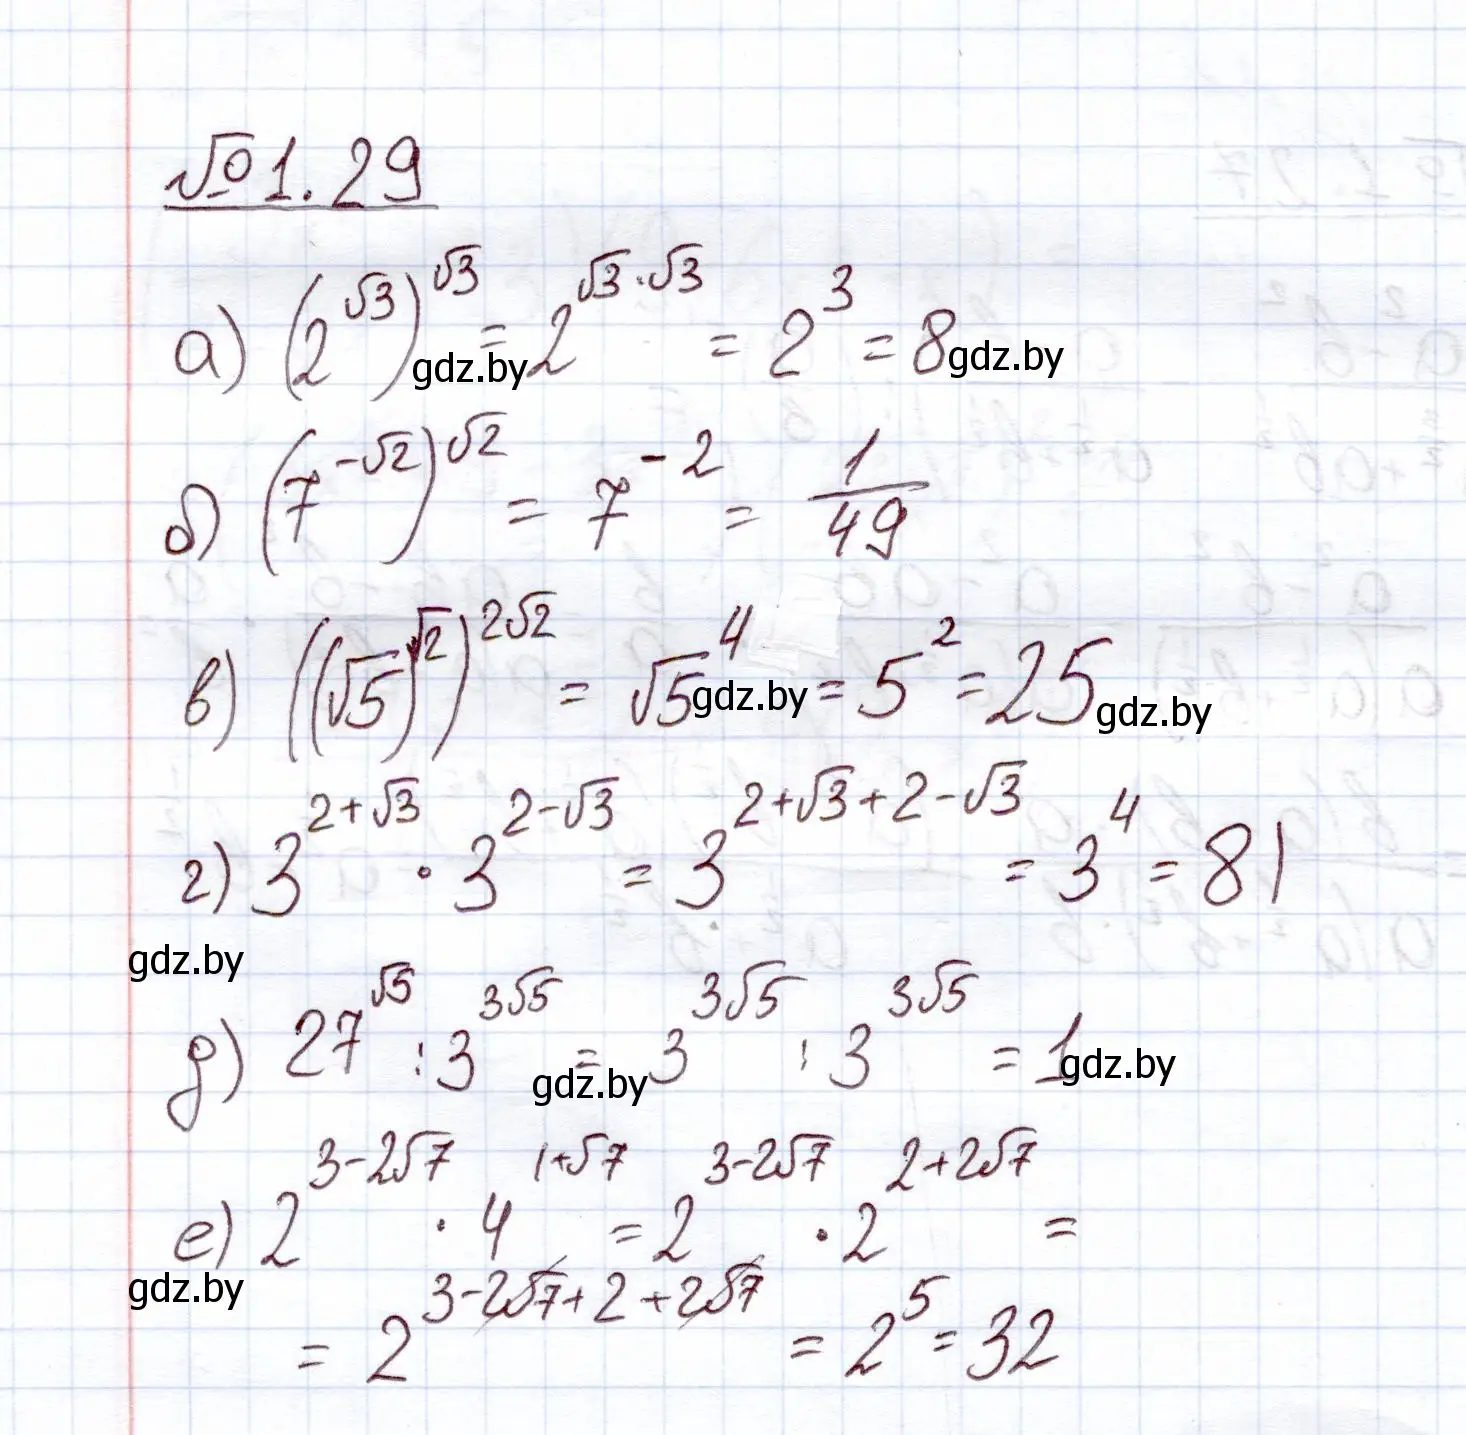 № 1.29
а) (2^√3)^√3 = 2^(√3·√3) = 2^3 = 8
gdz.by gdz.by
б) (7^(-√2))^√2 = 7^(-2) = 1/49
в) ((√5)^√2)^(2√2) = √5^4 = 5^2 = 25
gdz.by gdz.by
г) 3^(2+√3) · 3^(2-√3) = 3^(2+√3+2-√3) = 3^4 = 81
gdz.by
д) 27^√5 : 3^(3√5) = 3^(3√5) : 3^(3√5) = 1
gdz.by gdz.by
е) 2^(3-2√7) · 4^(1+√7) = 2^(3-2√7) · 2^(2+2√7) =
gdz.by
= 2^(3-2√7+2+2√7) = 2^5 = 32